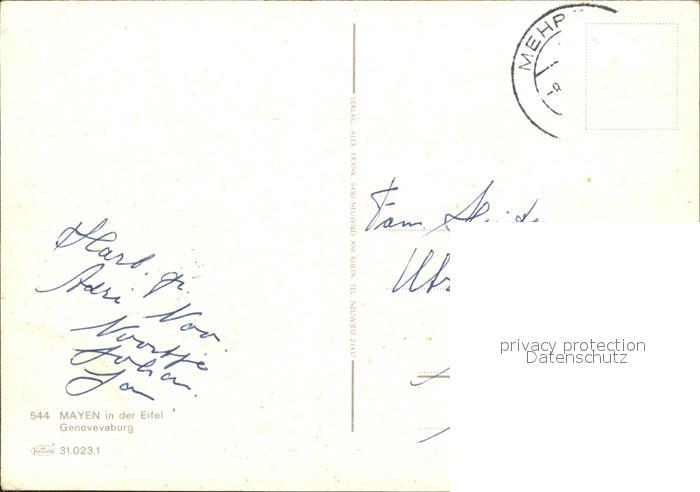 MEHR
VERLAG ALEX. FRANK, 5450 NEUWIED AM RHEIN, TEL. NEUWIED 23437
Fam.
Hart. gr.
Adri
Noortje
Johan.
Jan
privacy protection
Datenschutz
544 MAYEN in der Eifel
Genovevaburg
Krüger 31.023.1